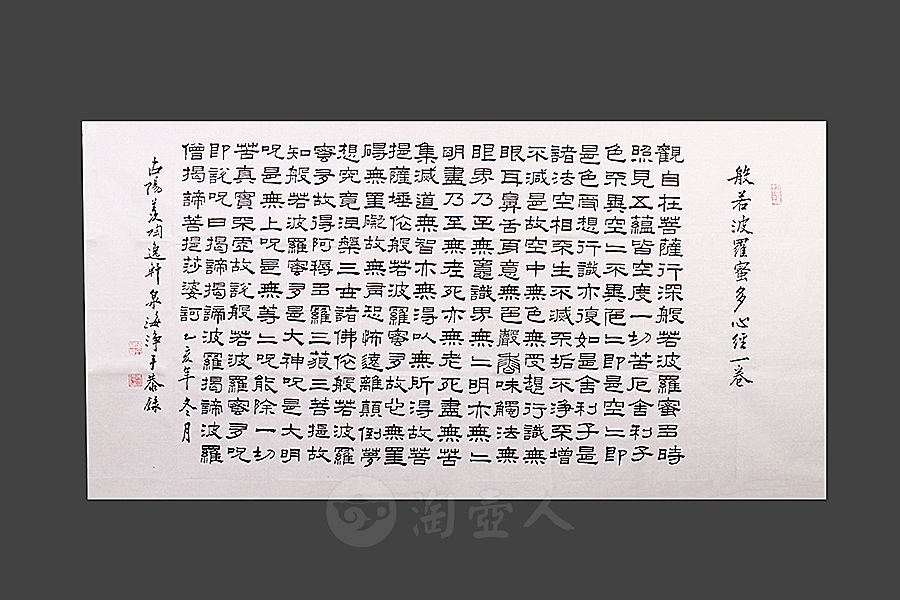 般若波羅蜜多心經一卷
觀自在菩薩行深般若波羅蜜多時
照見五蘊皆空度一切苦厄舍利子
色不異空〻不異色〻即是空〻即
是色受想行識亦復如是舍利子是
諸法空相不生不滅不垢不淨不增
不減是故空中無色無受想行識無
眼耳鼻舌身意無色聲香味觸法無
眼界乃至無意識界無〻明亦無〻
明盡乃至無老死亦無老死盡無苦
集滅道無智亦無得以無所得故菩
提薩埵依般若波羅蜜多故心無罣
礙無罣礙故無有恐怖遠離顛倒夢
想究竟涅槃三世諸佛依般若波羅
蜜多故得阿耨多羅三藐三菩提故
知般若波羅蜜多是大神呪是大明
呪是無上呪是無等〻呪能除一切
苦真實不虛故說般若波羅蜜多呪
即說呪曰揭諦揭諦波羅揭諦波羅
僧揭諦菩提莎婆訶 乙亥年冬月
古陽羨陶逸軒泉海淨手恭錄
淘壺人